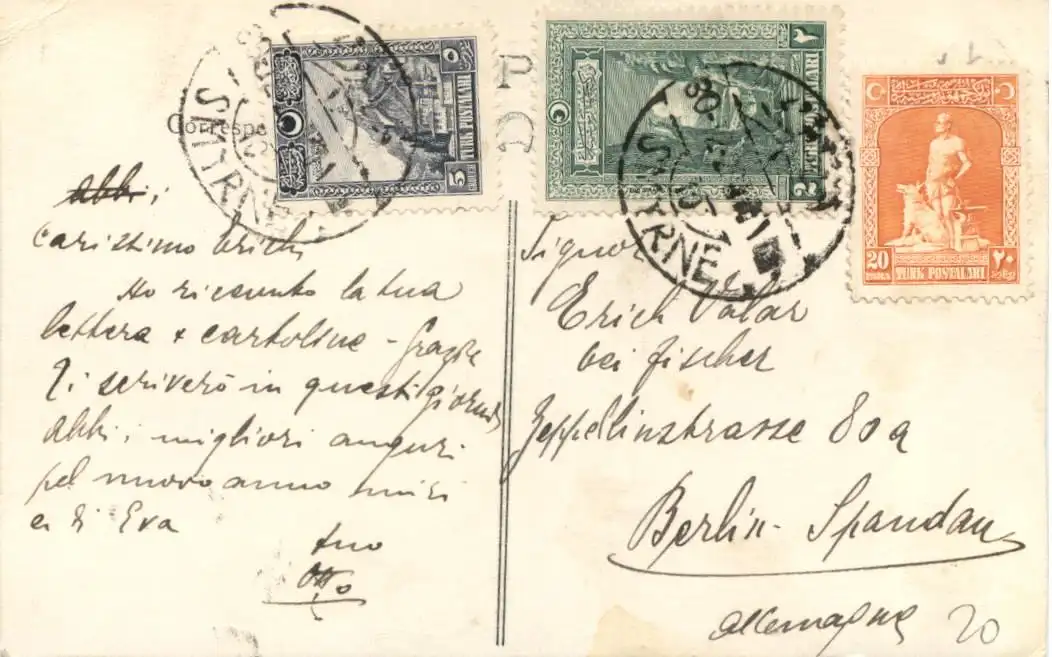 Correspo
PO
5
TÜRK POSTALARI
٥
2
TÜRK POSTALARI
٢
20
TÜRK POSTALARI
٢٠
SMYRNE
SMYRNE
Abbi,
Carissimo Erich
Ho ricevuto la tua
lettera + cartoline - Grazie
Ti scriverò in questi giorni
Abbi i migliori auguri
pel nuovo anno miei
e di Eva
tuo
Otto
Signor
Erich Valar
bei Fischer
Zeppelinstrasse 80a
Berlin-Spandau
Allemagne
20